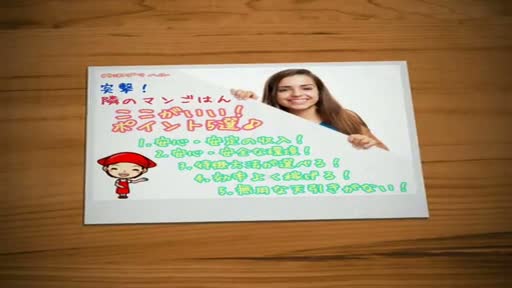 突撃！
隣のマンごはん
ここがいい！
ポイント5選♪
1.安心・安定の収入！
2.安心・安全な環境！
3.待機方法が選べる！
4.効率よく稼げる！
5.無用な天引きがない！